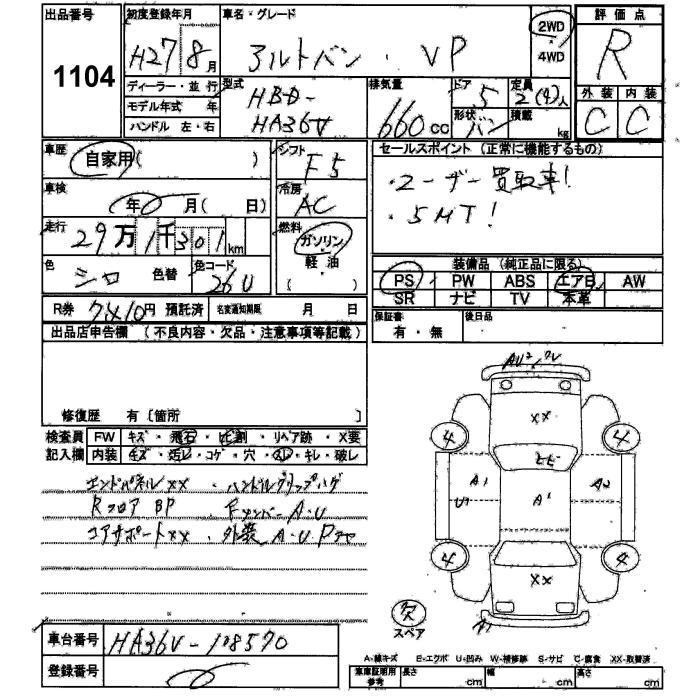 出品番号
1104
初度登録年月
H27 8月
ディーラー・並行
モデル年式 年
ハンドル 左・右
車名・グレード
アルトバン . VP
2WD
4WD
型式
HBD-
HA36V
排気量
660cc
ドア
5
形状
バン
定員
2(4)人
積載
kg
評価点
R
外装 内装
C C
車歴
自家用( )
車検
年 月( 日)
走行
29万1千301km
色
シロ 色替
色コード
26U
シフト
F5
冷房
AC
燃料
ガソリン
軽・油
( )
セールスポイント (正常に機能するもの)
・ユーザー買取車!
・5MT!
装備品 (純正品に限る)
PS PW ABS エアB AW
SR ナビ TV 本革
保証書
有・無
後日品
R券 7410円 預託済
名変通知期限 月 日
出品店申告欄 (不良内容・欠品・注意事項等記載)
修復歴 有〔箇所 〕
検査員
記入欄
FW キズ・飛石・ヒビ割・リペア跡・X要
内装 キズ・汚レ・コゲ・穴・スレ・キレ・破レ
エンドパネルXX ・ハンドルグリップハゲ
Rフロア BP ・Fメンバー A・U
コアサポートXX ・外装 A・U・P
車台番号
HA36V-108570
登録番号
XX
4 4
A1 A1 A2
U1
4 4
XX
欠
スペア
A1
A-線キズ E-エクボ U-凹み W-補修跡 S-サビ C-腐食 XX-取替済
車庫証明用
参考
長さ cm 幅 cm 高さ cm